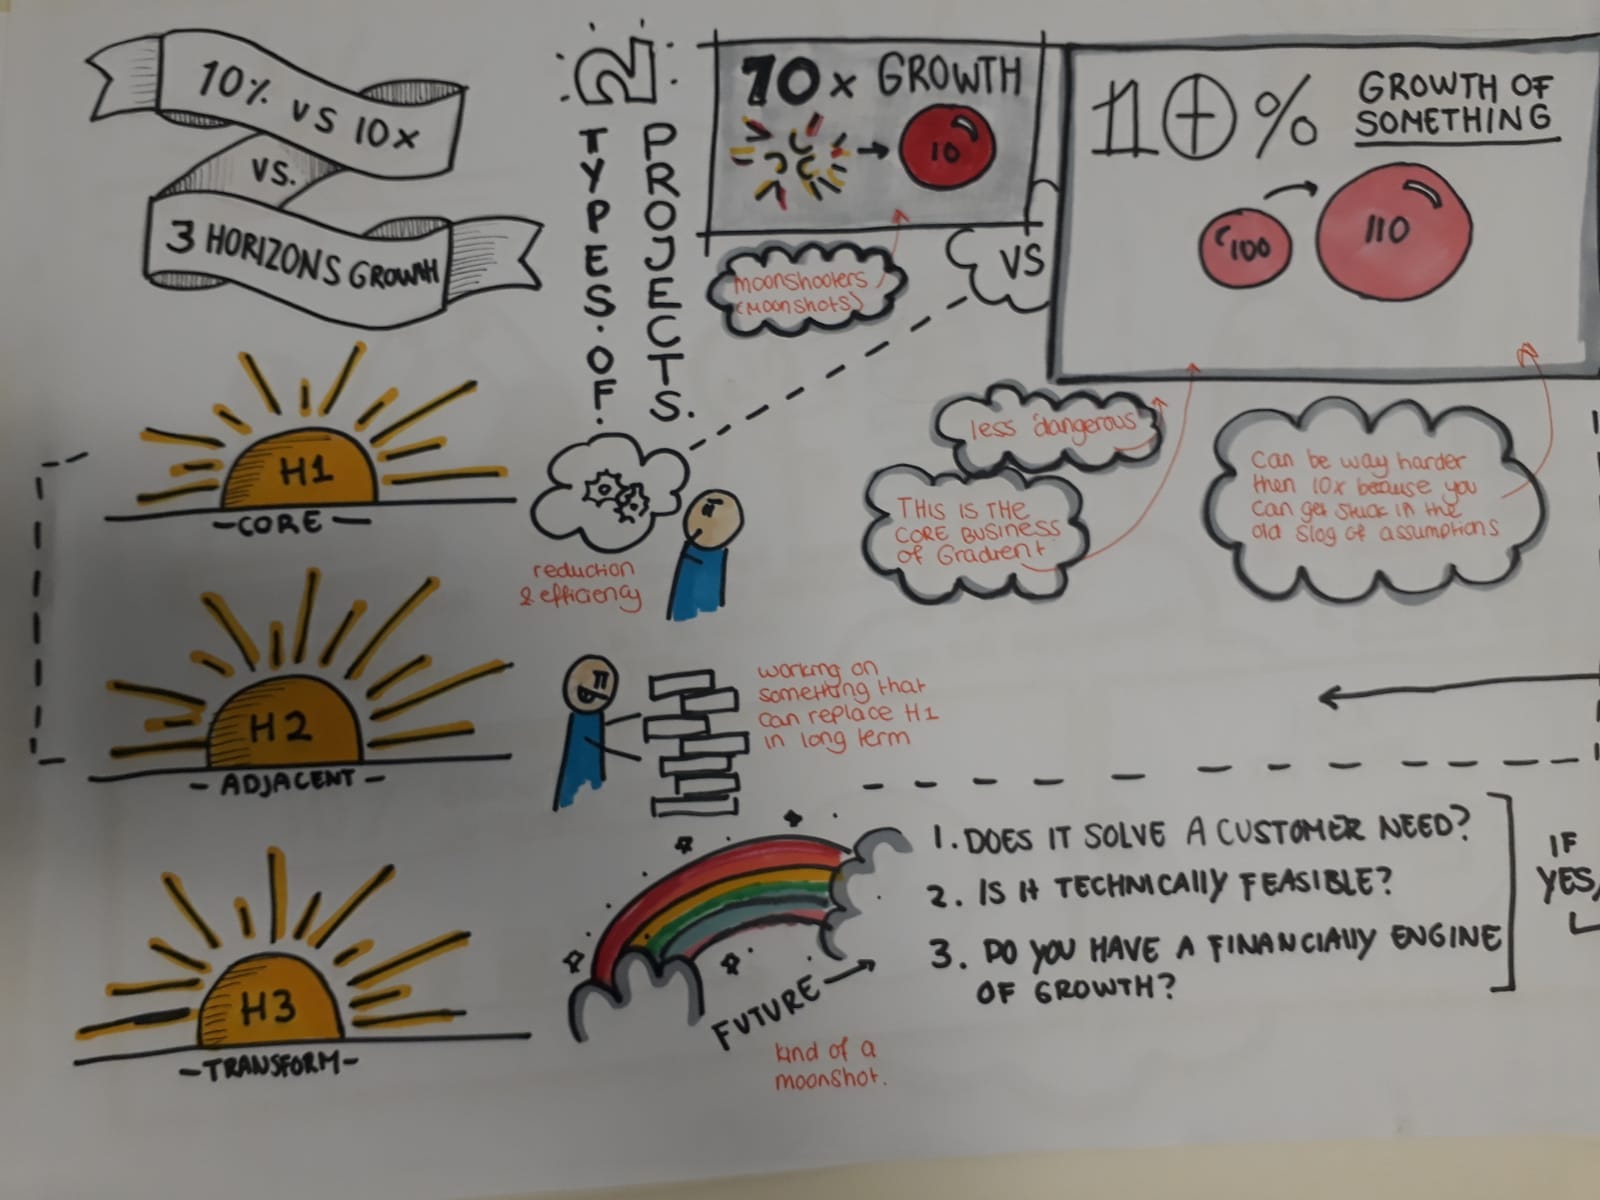 10% VS 10x
VS.
3 HORIZONS GROWTH
2
TYPES.OF.
PROJECTS.
10x GROWTH
10
moonshooters
(Moonshots)
VS
10%
GROWTH OF
SOMETHING
100
110
less dangerous
THIS IS THE
CORE BUSINESS
of Gradient
Can be way harder
then 10x because you
can get stuck in the
old slog of assumptions
H1
-CORE-
reduction
& efficiency
H2
-ADJACENT-
working on
something that
can replace H1
in long term
H3
-TRANSFORM-
FUTURE
kind of a
moonshot.
1. DOES IT SOLVE A CUSTOMER NEED?
2. IS IT TECHNICALLY FEASIBLE?
3. DO YOU HAVE A FINANCIALLY ENGINE
OF GROWTH?
IF
YES,